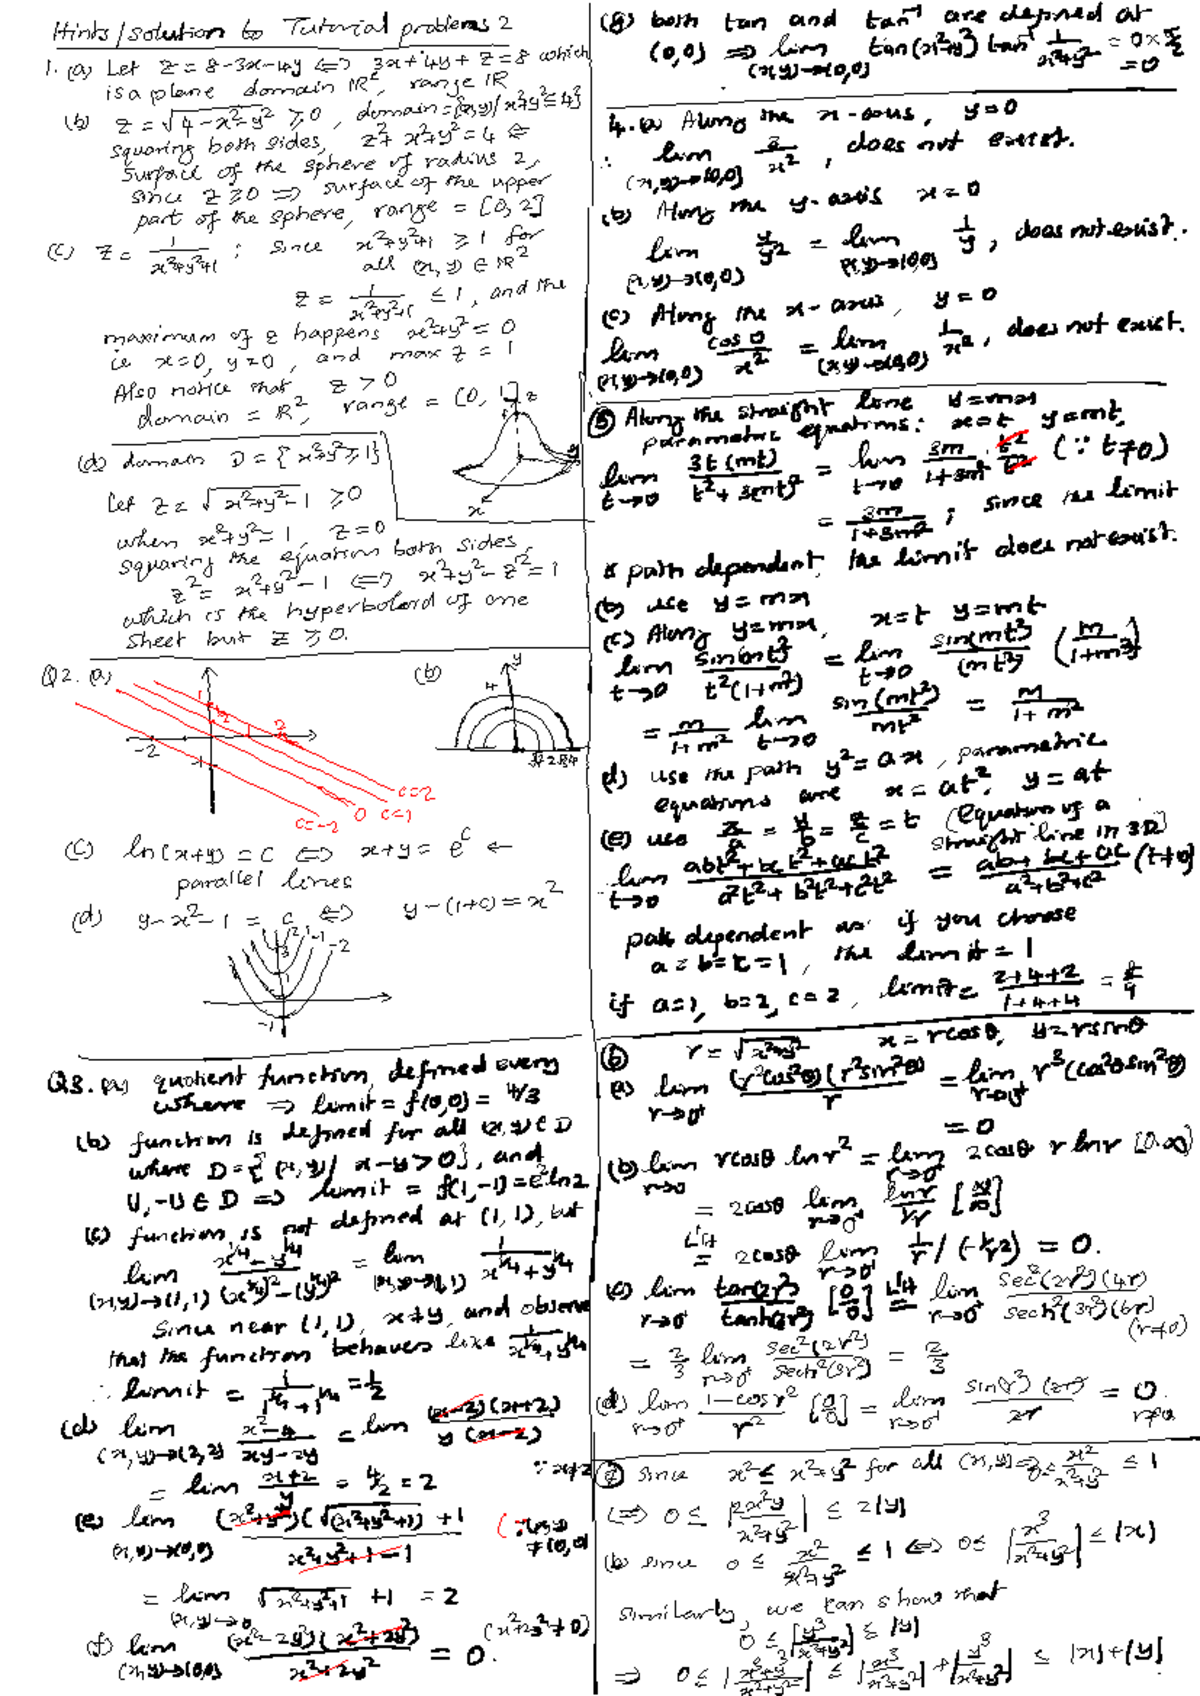 Hints/solution to Tutorial problems 2
1. (a) Let z = 8-3x-4y ⟺ 3x+4y+z=8 which
is a plane domain ℝ², range ℝ
(b) z = √(4-x²-y²) ≥ 0, domain = {(x,y)/x²+y²≤4}
squaring both sides, z²+x²+y²=4 ⇐
surface of the sphere of radius 2,
since z ≥ 0 ⟹ surface of the upper
part of the sphere, range = [0,2]
(c) z = 1/(x²+y²+1) ; since x²+y²+1 ≥ 1 for
all (x,y) ∈ ℝ²
z = 1/(x²+y²+1) ≤ 1, and the
maximum of z happens x²+y² = 0
ie x=0, y=0, and max z = 1
Also notice that, z > 0
domain = ℝ², range = (0, 1]
z
y
x
(d) domain D = {x²+y²≥1}
Let z = √(x²+y²-1) ≥ 0
when x²+y²=1, z=0
squaring the equation both sides,
z² = x²+y²-1 ⟺ x²+y²-z²=1
which is the hyperboloid of one
sheet but z ≥ 0.
Q2. (a)
-2
-1
1
c=2
c=1
0
c=-2
(b)
y
4
(c) ln(x+y) = c ⟺ x+y = e^c ←
parallel lines
(d) y-x²-1 = c ⟺ y-(1+c) = x²
-2
-1
Q3. (a) quotient function, defined every
where ⟹ limit = f(0,0) = 4/3
(b) function is defined for all (x,y) ∈ D
where D = {(x,y)/ x-y>0}, and
(1,-1) ∈ D ⟹ limit = f(1,-1) = e² ln2
(c) function is not defined at (1,1), but
lim (x,y)→(1,1) (x^¼ - y^¼)/((x^¼)² - (y^¼)²) = lim (x,y)→(1,1) 1/(x^¼+y^¼)
Since near (1,1), x≠y, and observe
that the function behaves like 1/(x^¼+y^¼)
∴ limit = 1/(1^¼+1^¼) = 1/2
(d) lim (x,y)→(2,2) (x²-4)/(xy-2y) = lim (x-2)(x+2)/(y(x-2))
= lim (x+2)/y = 4/2 = 2 ∵ x≠2
(e) lim (x,y)→(0,0) (x²+y²)(√(x²+y²+1) + 1)/(x²+y²+1-1) (∵(x,y)≠(0,0))
= lim (x,y)→0 √(x²+y²+1) + 1 = 2
(f) lim (x,y)→(0,0) (x²-2y²)(x²+2y²)/(x²+2y²) = 0. (x²+2y²≠0)
(g) both tan and tan⁻¹ are defined at
(0,0) ⟹ lim (x,y)→(0,0) tan(x²+y²) tan⁻¹ 1/(x²+y²) = 0 × π/2
= 0
4. (a) Along the x-axis, y=0
∴ lim (x,y)→(0,0) 2/x², does not exist.
(b) Along the y-axis x=0
lim (x,y)→(0,0) y/y² = lim (x,y)→(0,0) 1/y, does not exist.
(c) Along the x-axis, y=0
lim (x,y)→(0,0) cos 0/x² = lim (x,y)→(0,0) 1/x², does not exist.
(5) Along the straight line y=mx
parametric equations: x=t y=mt,
lim t→0 3t(mt)/(t²+3(mt)²) = lim t→0 3m/(1+3m²) · t²/t² (∵ t≠0)
= 3m/(1+3m²) ; since the limit
is path dependent, the limit does not exist.
(b) use y=mx
(c) Along y=mx, x=t y=mt
lim t→0 sin(mt²)/(t²(1+m²)) = lim t→0 sin(mt²)/(mt²) (m/(1+m²))
= m/(1+m²) lim t→0 sin(mt²)/mt² = m/(1+m²)
(d) use the path y²=ax, parametric
equations are x=at², y=at
(e) use x/a = y/b = z/c = t (Equation of a
straight line in 3D)
lim t→0 (abt²+bct²+act²)/(a²t²+b²t²+c²t²) = (ab+bc+ac)/(a²+b²+c²) (t≠0)
path dependent as if you choose
a=b=c=1, the limit = 1
if a=1, b=2, c=2, limit = (2+4+2)/(1+4+4) =
(6) r = √(x²+y²) x=rcosθ, y=rsinθ
(a) lim r→0⁺ (r²cos²θ)(r²sin²θ)/r = lim r→0⁺ r³(cos²θsin²θ)
= 0
(b) lim r→0 rcosθ ln r² = lim r→0⁺ 2cosθ r ln r [0.∞]
= 2cosθ lim r→0⁺ ln r/(1/r) [∞/∞]
L'H = 2cosθ lim r→0⁺ 1/r / (-1/r²) = 0.
(c) lim r→0⁺ tan(2r²)/tanh(3r²) [0/0] L'H = lim r→0⁺ sec²(2r²)(4r)/(sech²(3r²)(6r)) (r≠0)
= 2/3 lim r→0⁺ sec²(2r²)/sech²(3r²) = 2/3
(d) lim r→0⁺ (1-cos r²)/r² [0/0] = lim r→0⁺ sin(r²)(2r)/2r = 0. r≠0
(7) since x² ≤ x²+y² for all (x,y) ⟹ 0 ≤ x²/(x²+y²) ≤ 1
⟺ 0 ≤ |2x²y/(x²+y²)| ≤ 2|y|
(b) since 0 ≤ x²/(x²+y²) ≤ 1 ⟺ 0 ≤ |x³/(x²+y²)| ≤ |x|
similarly, we can show that
0 ≤ |y³/(x²+y²)| ≤ |y|
⟹ 0 ≤ |(x³+y³)/(x²+y²)| ≤ |x³/(x²+y²)| + |y³/(x²+y²)| ≤ |x|+|y|